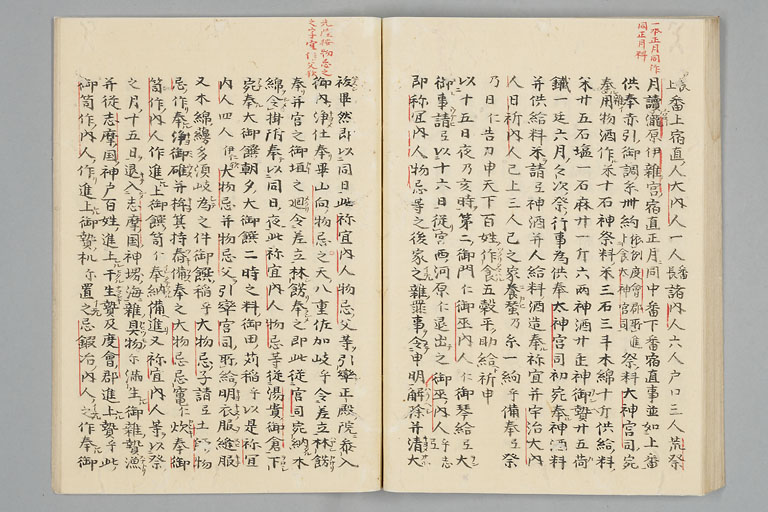 上番上宿直人大内人一人諸内人六人戸口三人荒祭
月讀瀧原伊雜宮宿直正月同中番下番宿直事並如上番
供奉赤引御調糸卌約
祭料大神宮司宛
奉用物酒作米十石神祭料米三石三斗木綿十斤供給料
米廿五石塩一石麻廿一斤六兩神酒廿缶神御贄廿五荷
鐵一廷六月
次祭行事為供奉大神宮司初宛奉神酒料
并供給料米請弖神酒并人給料酒造奉祢宜并宇治大内
人日祈内人已上三人己之家養蚕乃糸一約乎備奉弖祭
乃日仁告刀申天下百姓作食五穀平助給祈申
以十五日夜乃亥時第二御門仁御巫内人仁御琴給弖大
御事請弖以十六日從宮西河原仁退出之御巫内人乎志
即祢宜内人物忌等之後家之雜罪事令申明解除并清大
一本正月同作
同正月料
祓畢然即以同日此祢宜内人物忌父等引率正殿院參入
御内淨仕奉畢山向物忌之天八重佐加岐乎令差立林餝
奉并宮之御垣之廻令差立林餝奉之即此從宮司宛納木
綿令掛附奉以同日夜此祢宜内人物忌等從湯貴御倉下
宛奉大御饌朝夕大御饌二時之料御田苅稻乎以是祢宜
内人四人
大物忌并物忌父引率宮司所給明衣服縫服
又木綿纏多須岐為之件御饌稻乎大物忌子請弖土物
忌作奉淨御碓并杵箕持舂備奉之大物忌忌竈仁炊奉御
笥作内人作進上御饌笥仁奉納備進又祢宜内人等以祭
之月十五日退入志摩國神堺海雜具物滿生御雜贄漁
并從志摩國神戸百姓進上干生贄及度會郡進上贄乎此
御笥作内人作進上御贄机尓置之忌鍛冶内人之作奉御